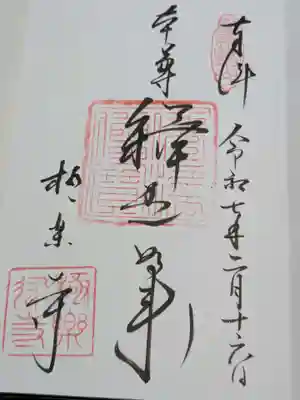 奉拝 令和七年二月十六日
本尊
釋迦如来
極楽寺